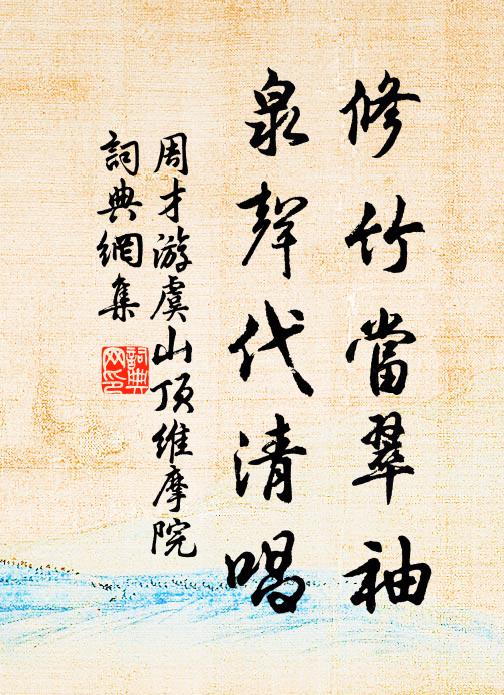 修竹當翠袖
泉聲代清唱
周才游虞山頂維摩院
詞典網集
詞典網印